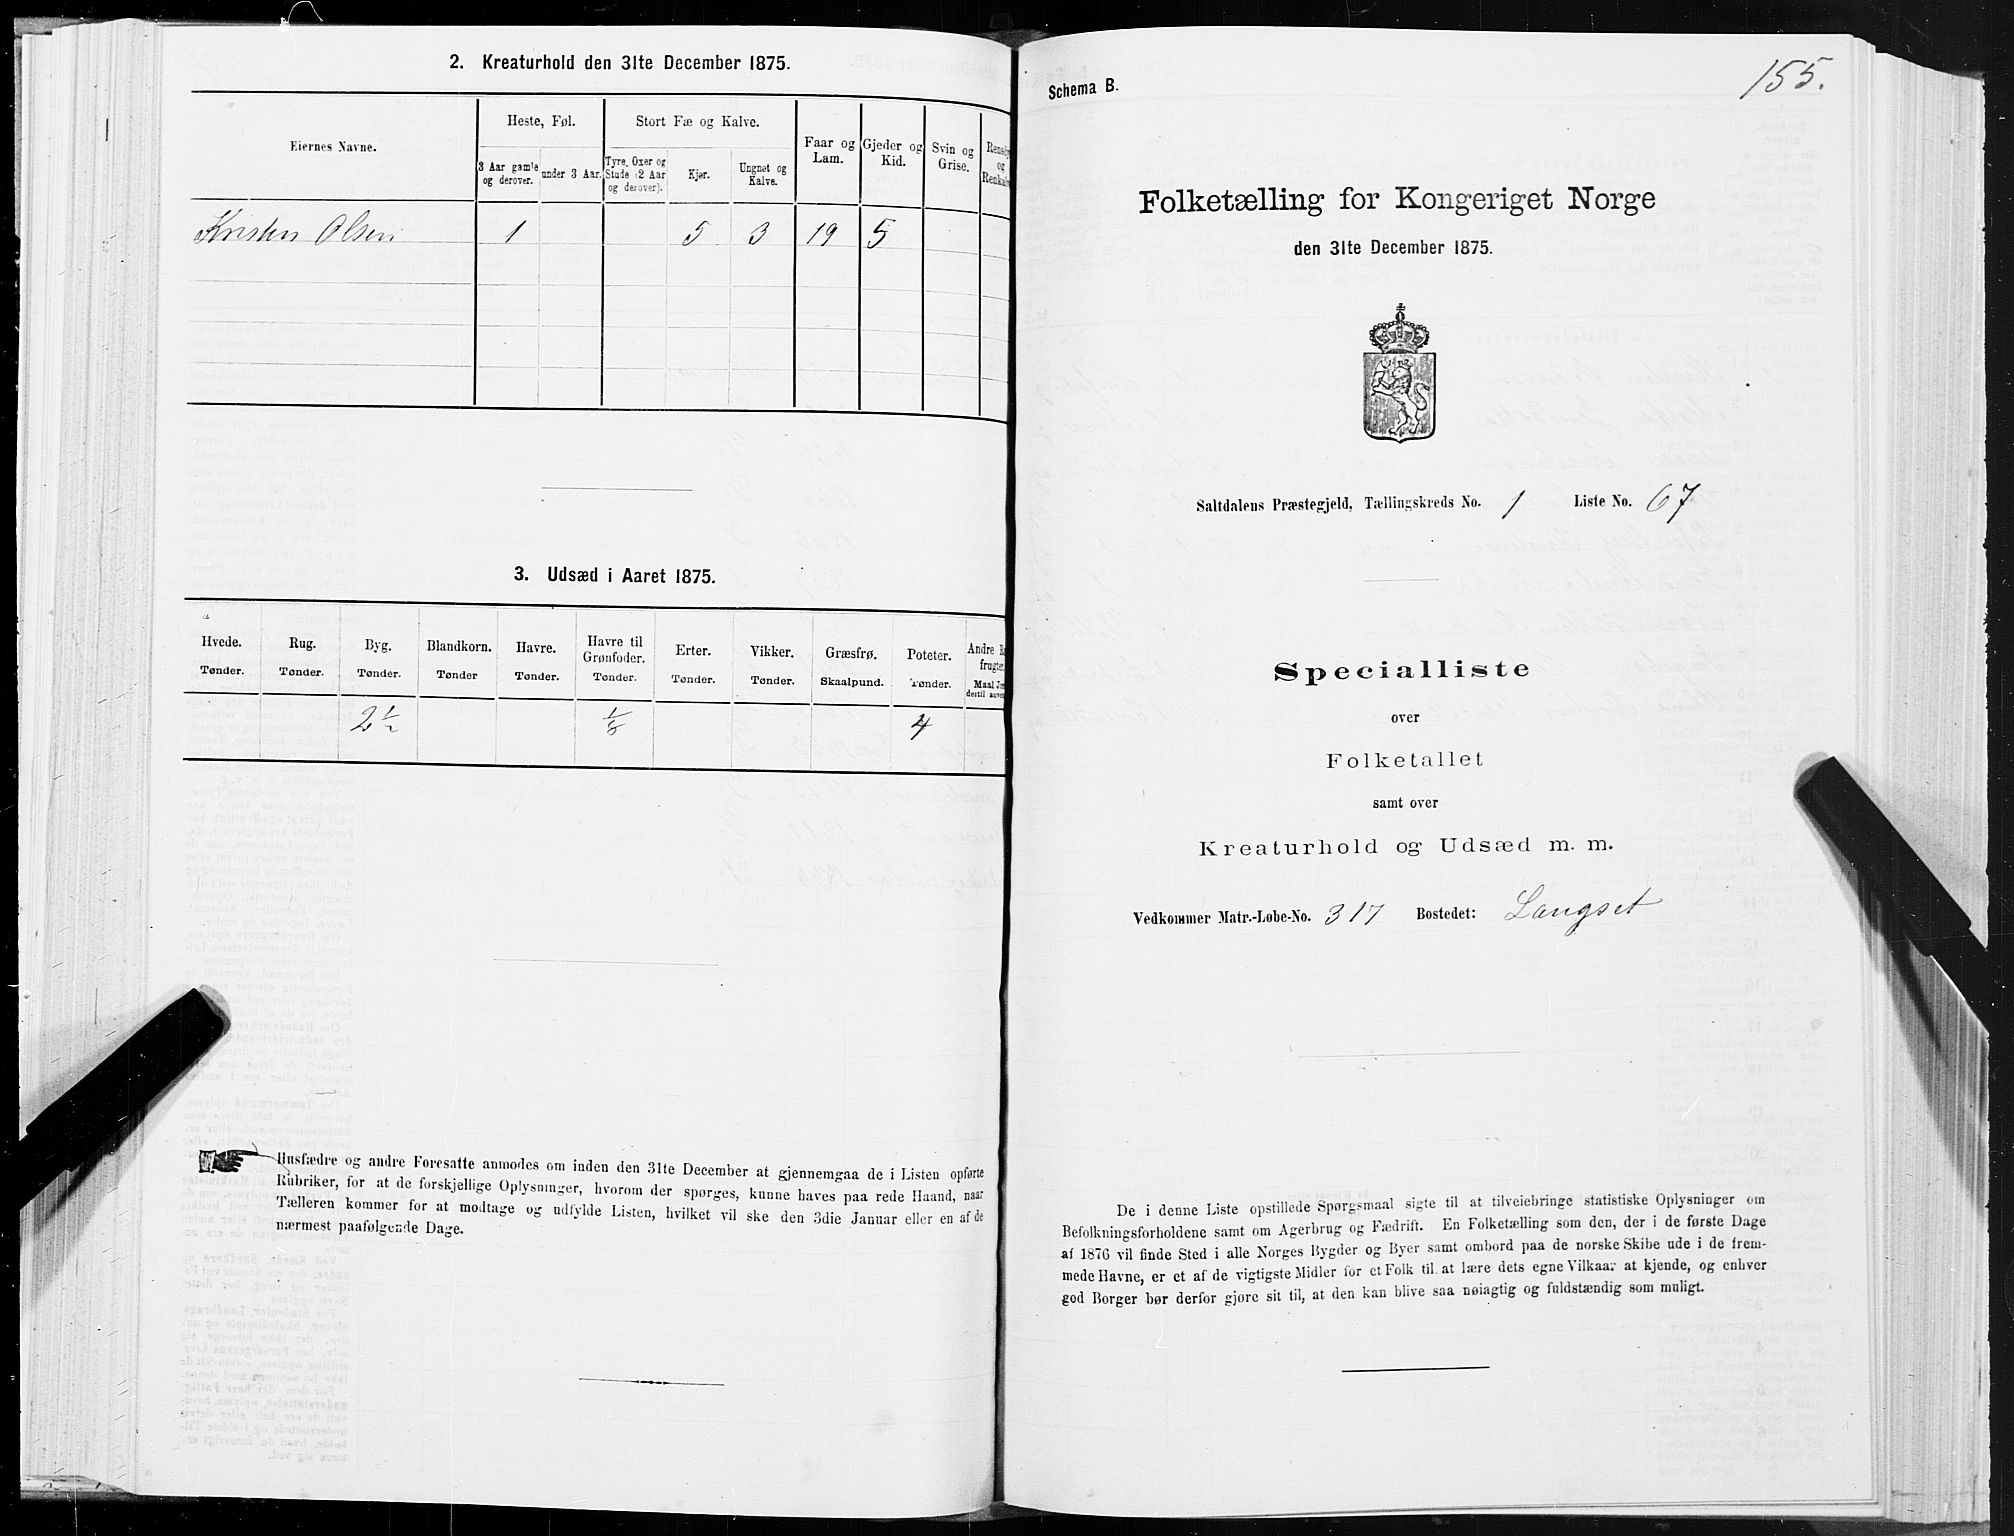 2. Kreaturhold den 31te December 1875.
Eiernes Navne.
Heste, Føl.
Stort Fæ og Kalve.
Faar og Lam.
Gjeder og Kid.
Svin og Grise.
Rensdyr og Renkalve
3 Aar gamle og derover.
under 3 Aar.
Tyre, Oxer og Stude (2 Aar og derover).
Kjør.
Ungnøt og Kalve.
Kristen Olsen 1 5 3 19 5
3. Udsæd i Aaret 1875.
Hvede. Rug. Byg. Blandkorn. Havre. Havre til Grønfoder. Erter. Vikker. Græsfrø. Poteter. Andre frugter
Tønder. Tønder. Tønder. Tønder Tønder. Tønder. Tønder. Tønder. Skaalpund. Tønder. Maal dertil
2 1/2 1/8 4
Husfædre og andre Foresatte anmodes om inden den 31te December at gjennemgaa de i Listen opførte
Rubriker, for at de forskjellige Oplysninger, hvorom der spørges, kunne haves paa rede Haand, naar
Tælleren kommer for at modtage og udfylde Listen, hvilket vil ske den 3die Januar eller en af de
nærmest paafølgende Dage.
155.
Schema B.
Folketælling for Kongeriget Norge
den 31te December 1875.
Saltdalens Præstegjeld, Tællingskreds No. 1 Liste No. 67
Specialliste
over
Folketallet
samt over
Kreaturhold og Udsæd m. m.
Vedkommer Matr.-Løbe-No. 317 Bostedet: Langset
De i denne Liste opstillede Spørgsmaal sigte til at tilveiebringe statistiske Oplysninger om
Befolkningsforholdene samt om Agerbrug og Fædrift. En Folketælling som den, der i de første Dage
af 1876 vil finde Sted i alle Norges Bygder og Byer samt ombord paa de norske Skibe ude i de frem-
mede Havne, er et af de vigtigste Midler for et Folk til at lære dets egne Vilkaar at kjende, og enhver
god Borger bør derfor gjøre sit til, at den kan blive saa nøiagtig og fuldstændig som muligt.